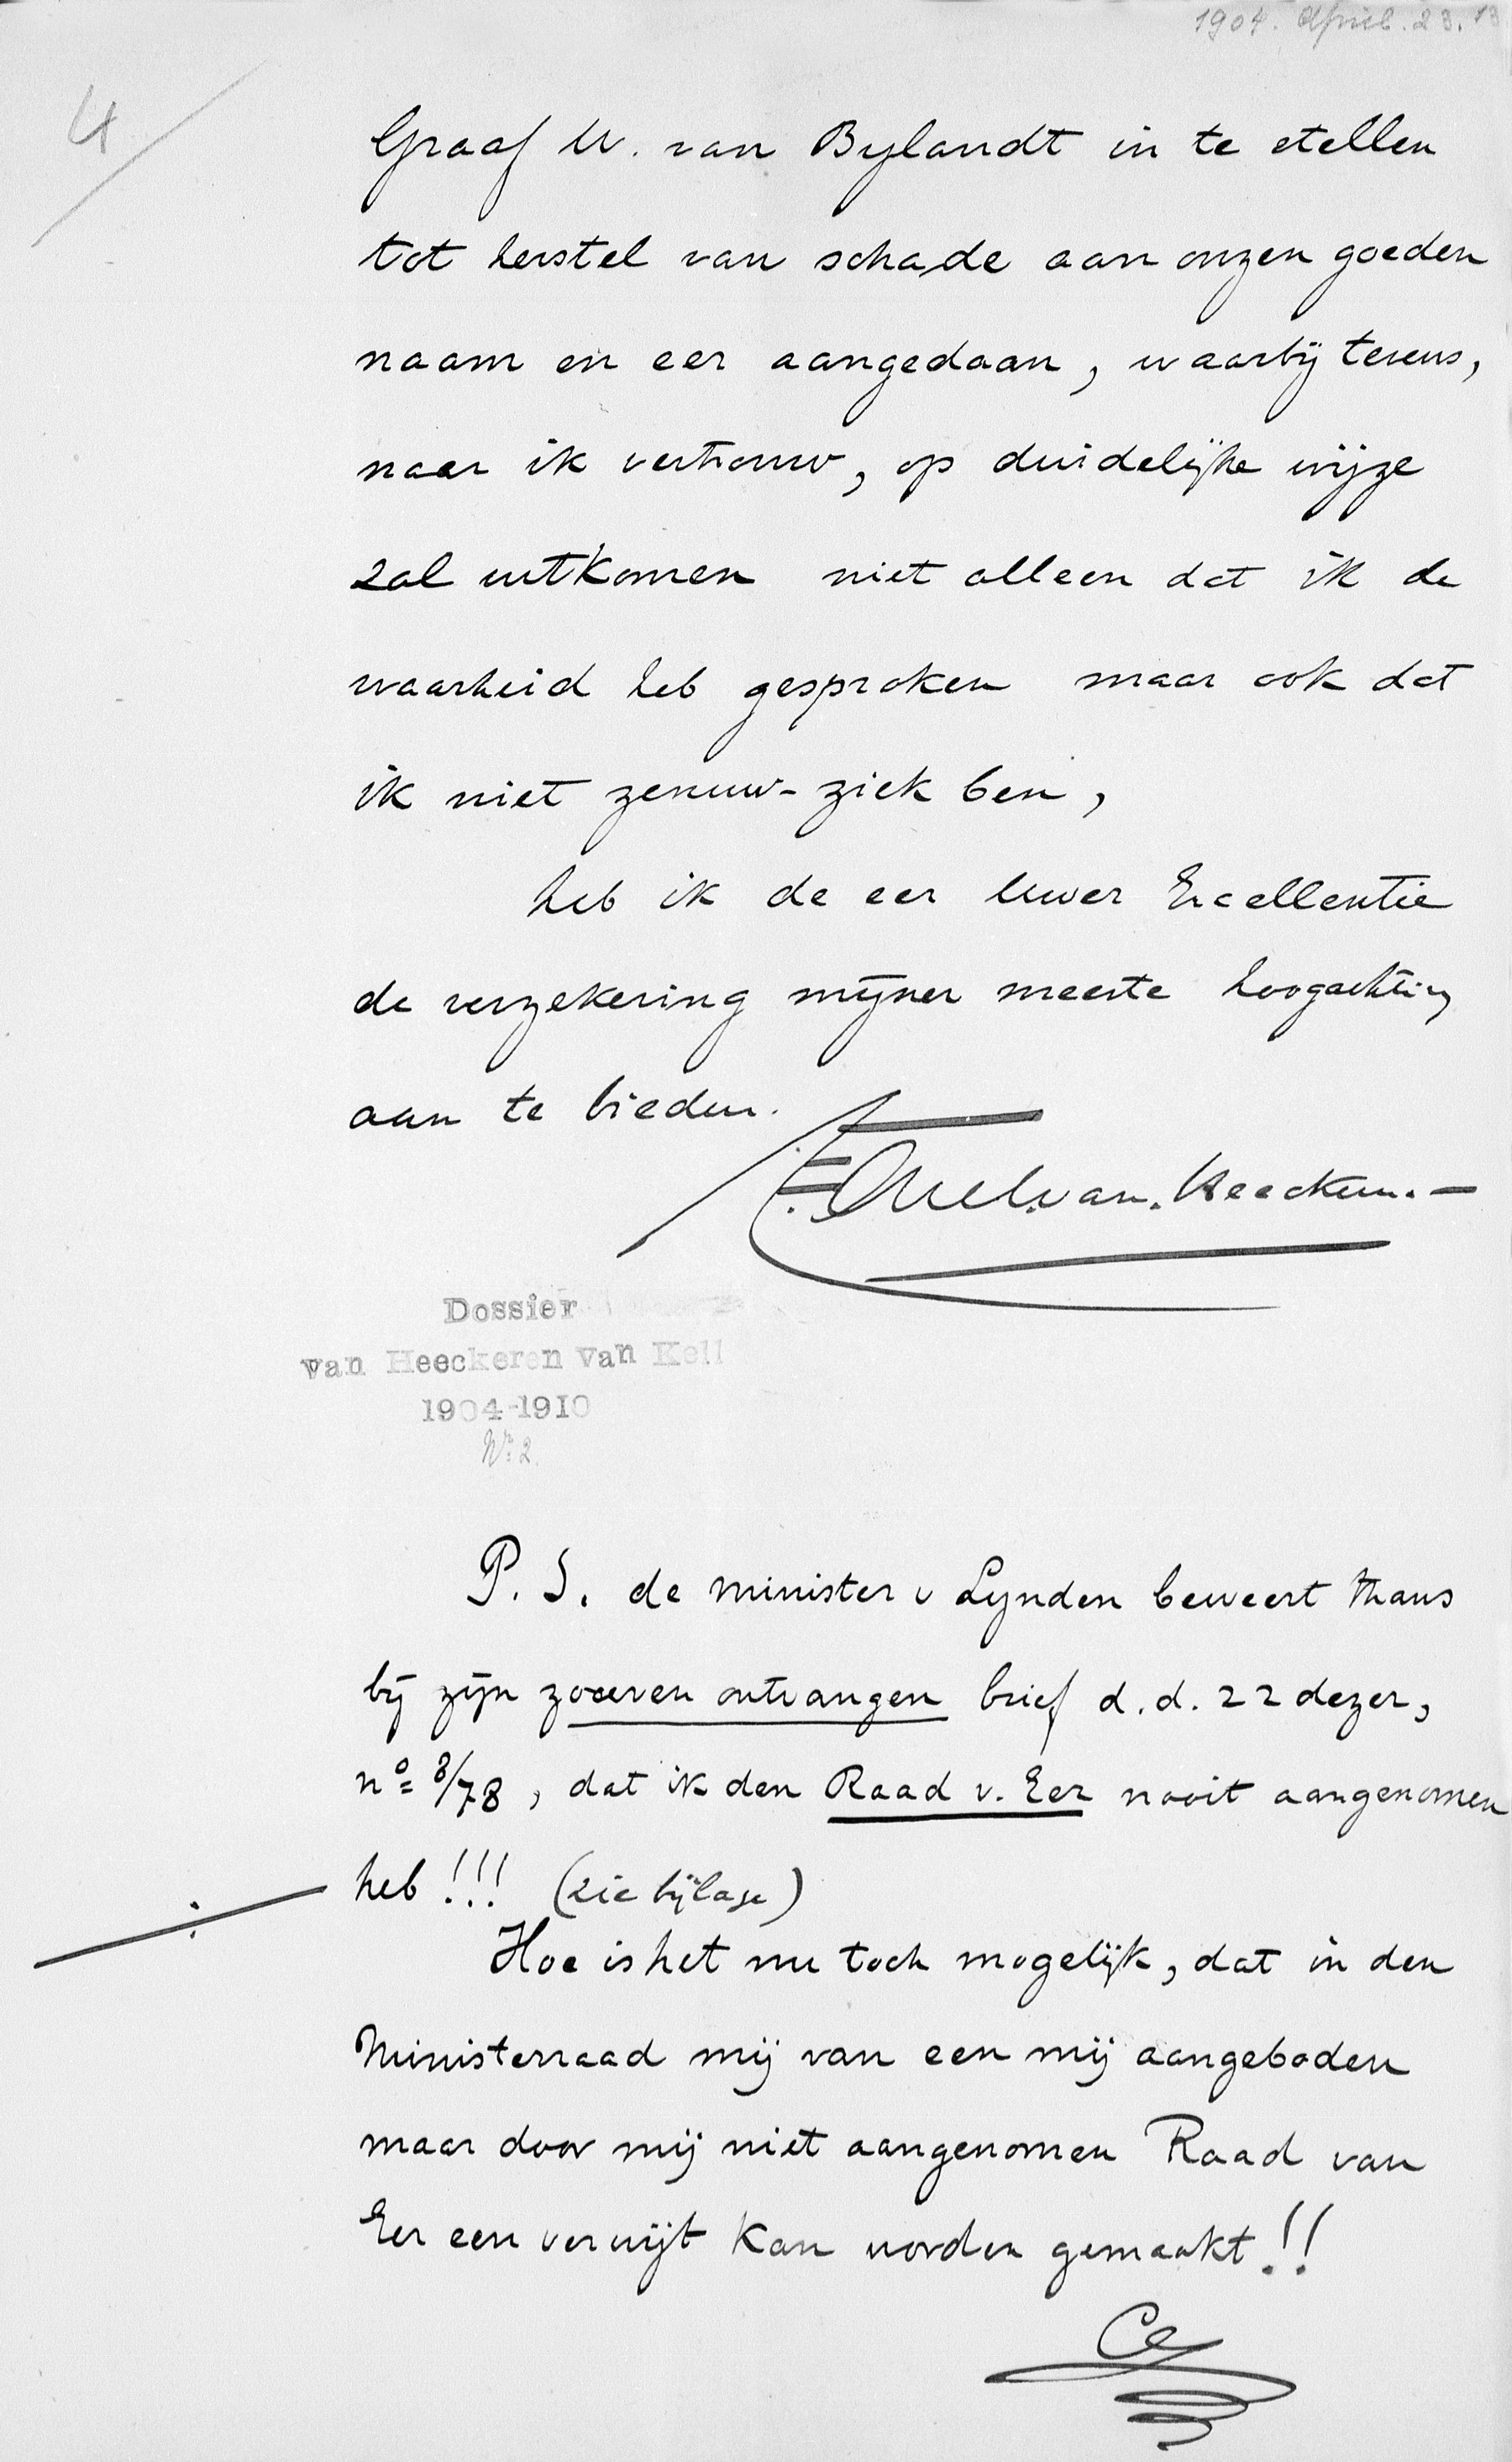 1904. April. 23. 13
4
Graaf W. van Bylandt in te stellen
tot herstel van schade aan onzen goeden
naam en eer aangedaan, waarbij tevens,
naar ik vertrouw, op duidelijke wijze
zal uitkomen niet alleen dat ik de
waarheid heb gesproken maar ook dat
ik niet zenuw-ziek ben,
heb ik de eer Uwer Excellentie
de verzekering mijner meeste hoogachting
aan te bieden.
van Heeckeren.
Dossier
van Heeckeren van Kell
1904-1910
Nr. 2
P. S. de minister v Lynden beweert thans
bij zijn zoeven ontvangen brief d.d. 22 dezer,
no 8/78, dat ik den Raad v. Eer nooit aangenomen
heb!!! (zie bijlage)
Hoe is het nu toch mogelijk, dat in den
Ministerraad mij van een mij aangeboden
maar door mij niet aangenomen Raad van
Eer een verwijt kan worden gemaakt!!